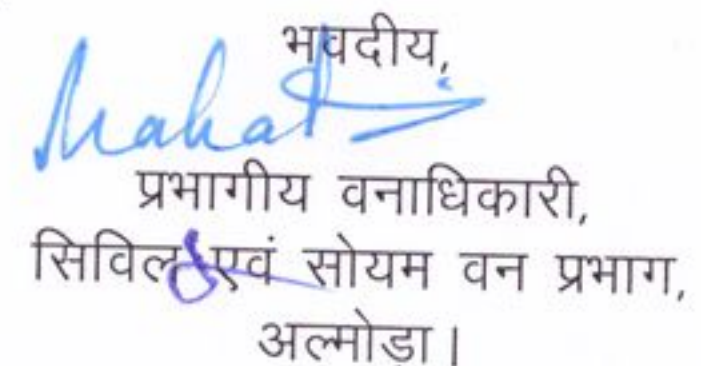 भवदीय,
प्रभागीय वनाधिकारी,
सिविल एवं सोयम वन प्रभाग,
अल्मोड़ा।